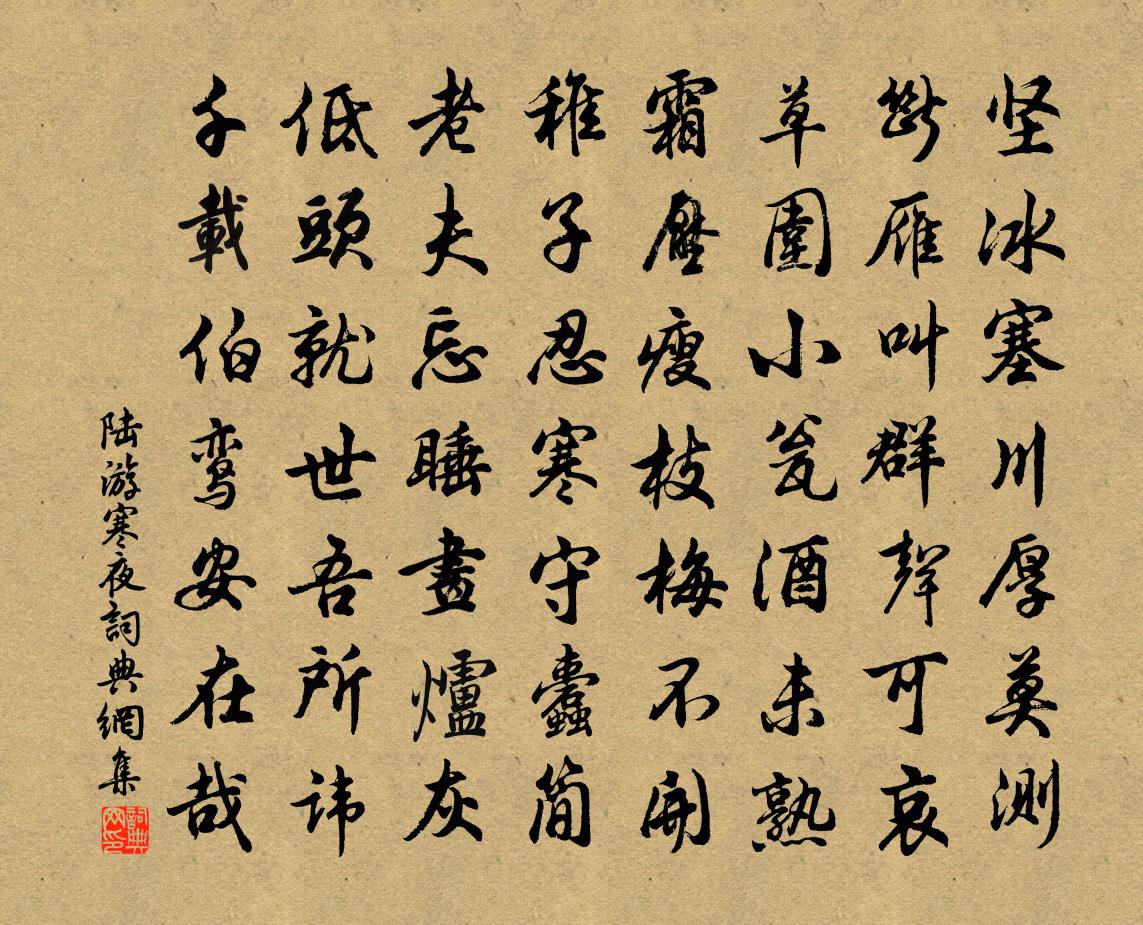 坚冰塞川厚莫测
断雁叫群聲可哀
草圍小瓮酒未熟
霜壓瘦枝梅不開
稚子忍寒守蠹简
老夫忘睡畫爐灰
低頭就世吾所讳
千載伯鸾安在哉
陆游寒夜詞典網集
詞典网印